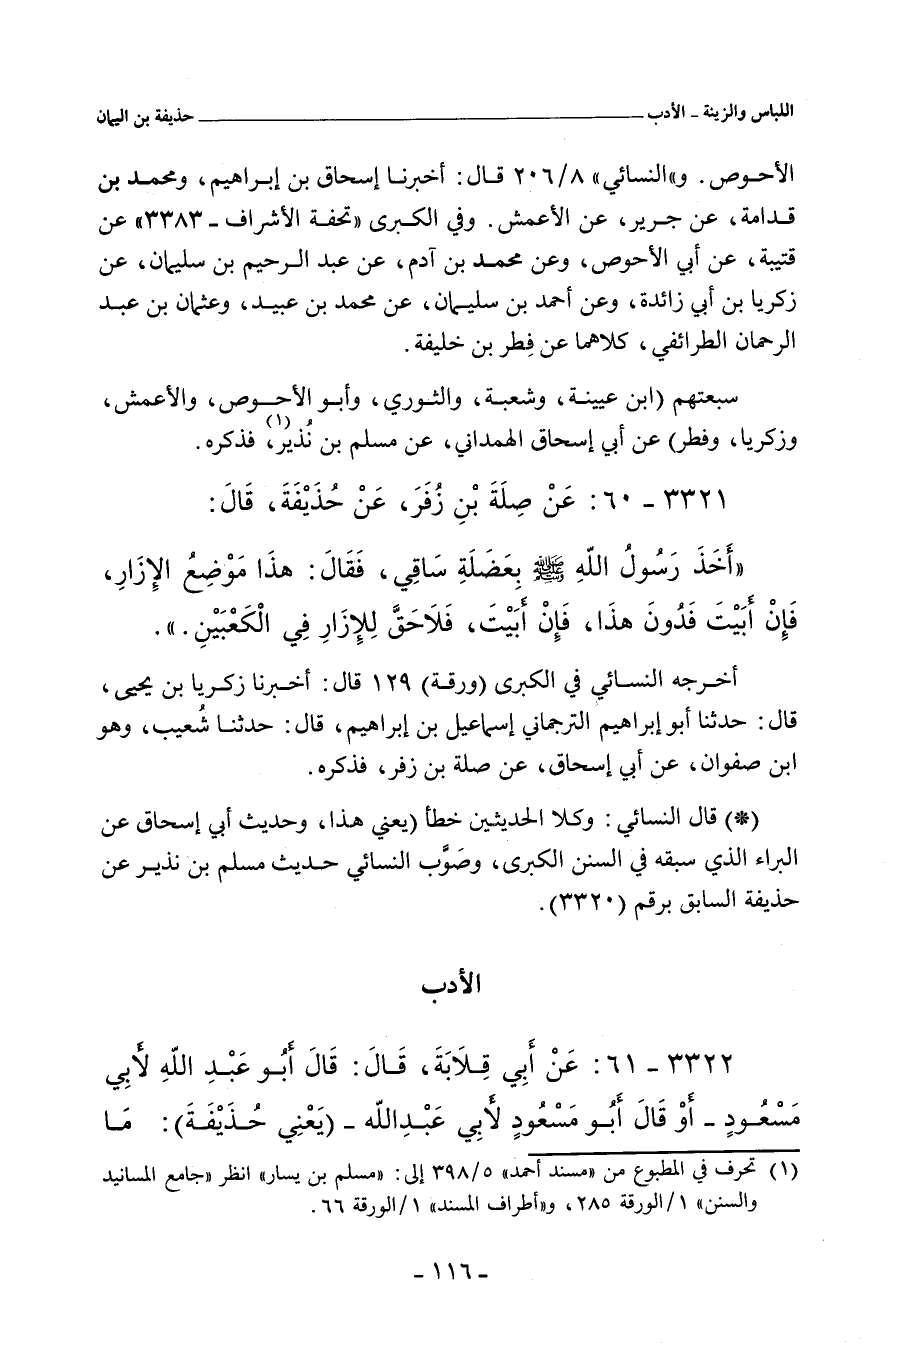 اللباس والزينة ـ الأدب ــــــــــــــــــــ حذيفة بن اليمان
الأحـوص. و«النسائي» ٢٠٦/٨ قـال: أخبرنـا إسحاق بن إبـراهيم، ومحمـد بن
قـدامة، عن جـرير، عن الأعمش. وفي الكبرى «تحفـة الأشراف ـ ٣٣٨٣» عن
قتيبة، عن أبي الأحوص، وعن محمـد بن آدم، عن عبد الـرحيم بن سليمان، عن
زكريا بن أبي زائدة، وعن أحمد بن سليـمان، عن محمد بن عبيـد، وعثمان بن عبـد
الرحمان الطرائفي، كلاهما عن فِطر بن خليفة.
سبعتهم (ابن عيينـة، وشعبـة، والثـوري، وأبـو الأحـوص، والأعمش،
وزكريا، وفطر) عن أبي إسحاق الهمداني، عن مسلم بن نُذيرٍ(١)، فذكره.
٣٣٢١ ـ ٦٠: عَنْ صِلَةَ بْنِ زُفَرَ، عَنْ حُذَيْفَةَ، قَالَ:
«أَخَذَ رَسُولُ اللّهِ ﷺ بِعَضَلَةِ سَاقِي، فَقَالَ: هذَا مَوْضِعُ الإِزَارِ،
فَإِنْ أَبَيْتَ فَدُونَ هذَا، فَإِنْ أَبَيْتَ، فَلَاحَقَّ لِلإِزَارِ فِي الْكَعْبَيْنِ.».
أخـرجه النسـائي في الكبرى (ورقـة) ١٢٩ قال: أخـبرنا زكـريا بن يحيى،
قال: حدثنا أبو إبراهيم الترجماني إسماعيل بن إبراهيم، قال: حدثنـا شُعيب، وهو
ابن صفوان، عن أبي إسحاق، عن صلة بن زفر، فذكره.
(*) قال النسائي: وكلا الحديثين خطأ (يعني هذا، وحديث أبي إسحاق عن
البراء الذي سبقه في السنن الكبرى، وصَوَّب النسائي حـديث مسلم بن نذيـر عن
حذيفة السابق برقم (٣٣٢٠).
الأدب
٣٣٢٢ ـ ٦١: عَنْ أَبِي قِـلَابَةَ، قَـالَ: قَالَ أَبُـو عَبْـدِ اللّهِ لأَبِي
مَسْعُـودٍ ـ أَوْ قَالَ أَبُـو مَسْعُودٍ لأَبِي عَبْـدِاللّه ـ (يَعْنِي حُـذَيْفَةَ): مَـا
(١) تحرف في المطبوع من «مسند أحمد» ٣٩٨/٥ إلى: «مسلم بن يسار» انظر «جامع المسانيد
والسنن» ١/الورقة ٢٨٥، و«أطراف المسند» ١/الورقة ٦٦.
ـ ١١٦ ـ